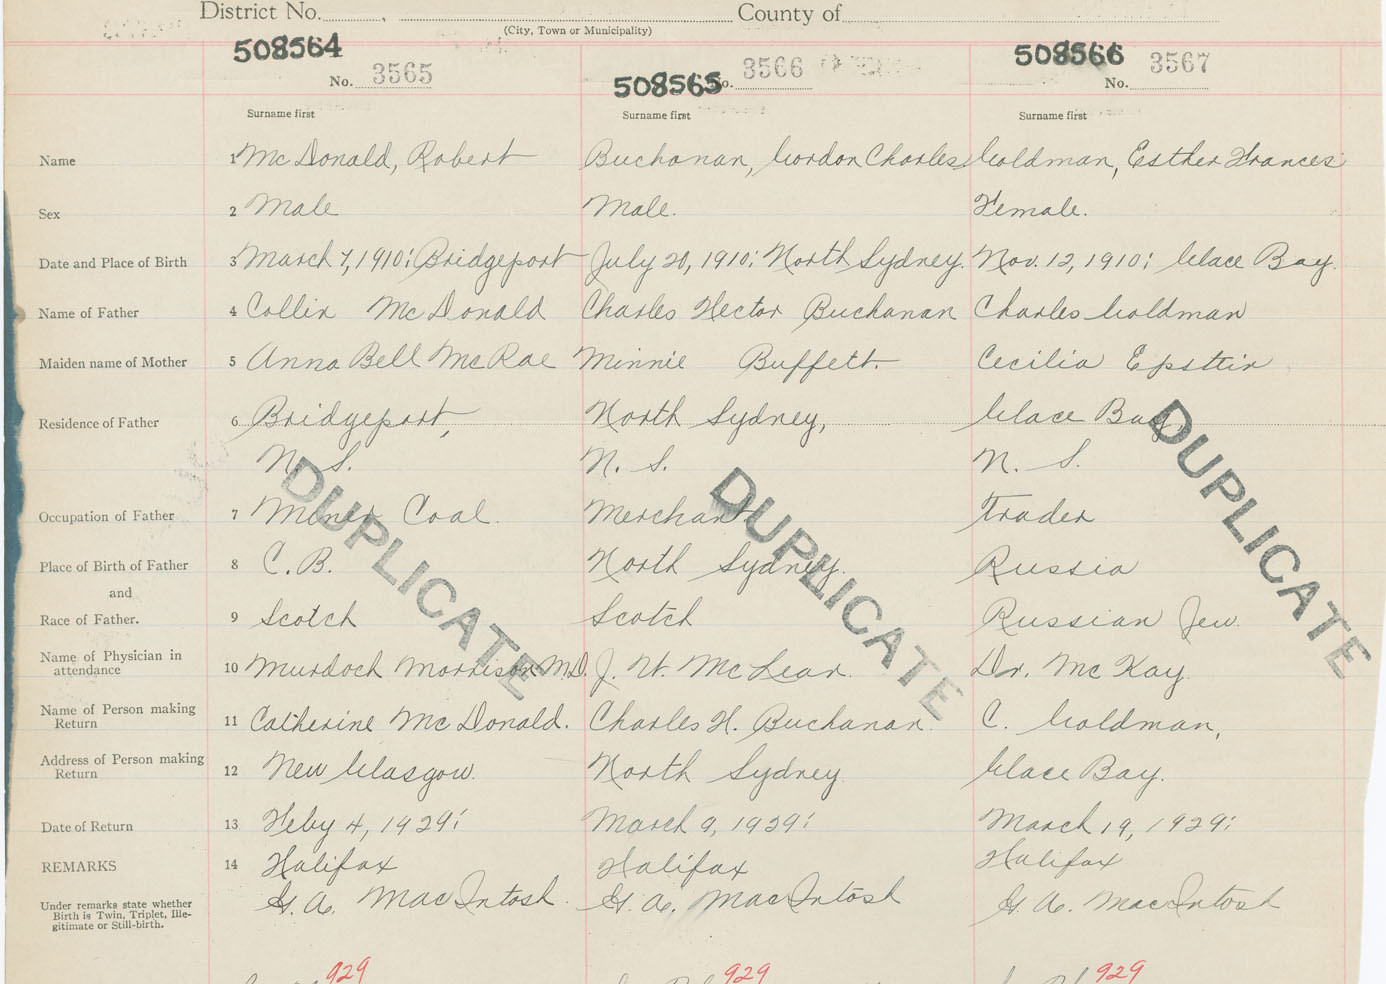 District No. , County of
(City, Town or Municipality)
508564 508565 508566
No. 3565 No. 3566 No. 3567
Surname first Surname first Surname first
Name 1 McDonald, Robert Buchanan, Gordon Charles Goldman, Esther Frances
Sex 2 Male Male. Female.
Date and Place of Birth 3 March 7, 1910; Bridgeport July 20, 1910; North Sydney. Nov. 12, 1910; Glace Bay.
Name of Father 4 Collin McDonald Charles Hector Buchanan Charles Goldman
Maiden name of Mother 5 Anna Bell McRae Minnie Buffett. Cecilia Epstein
Residence of Father 6 Bridgeport, North Sydney, Glace Bay,
N. S. N. S. N. S.
Occupation of Father 7 Miner Coal. Merchant Trader
Place of Birth of Father 8 C. B. North Sydney. Russia
and
Race of Father. 9 Scotch Scotch Russian Jew.
DUPLICATE DUPLICATE DUPLICATE
Name of Physician in
attendance 10 Murdoch Morrison M.D. J. W. McLean. Dr. McKay.
Name of Person making
Return 11 Catherine McDonald. Charles H. Buchanan. C. Goldman,
Address of Person making
Return 12 New Glasgow. North Sydney Glace Bay.
Date of Return 13 Feby 4, 1929; March 9, 1929; March 19, 1929;
REMARKS 14 Halifax Halifax Halifax
G. A. MacIntosh. G. A. MacIntosh G. A. MacIntosh
Under remarks state whether
Birth is Twin, Triplet, Ille-
gitimate or Still-birth.
929 929 929